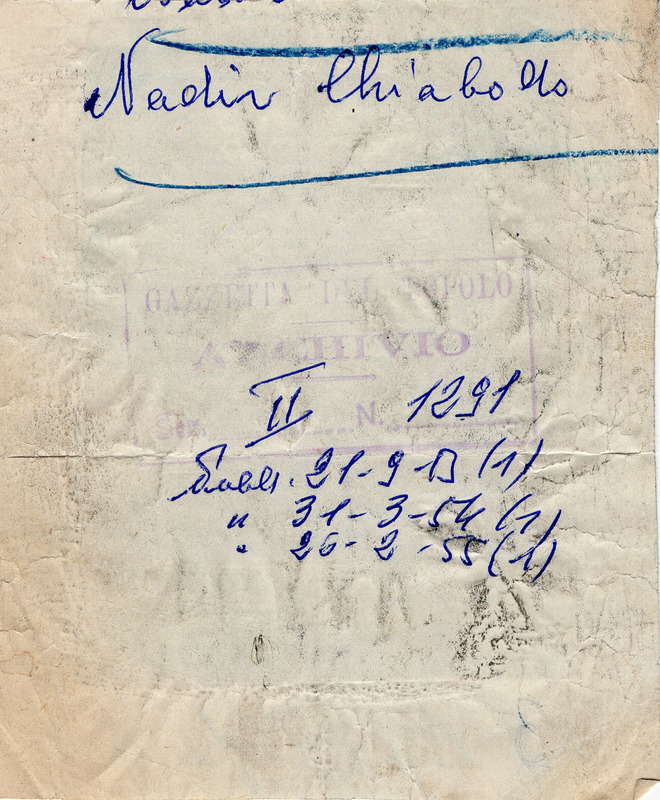 Nadir Chiabodo
GAZZETTA DEL POPOLO
ARCHIVIO
II 1291
Sez. N.
Pubbl. 21-9-53 (1)
" 31-3-54 (1)
" 26-2-55 (1)